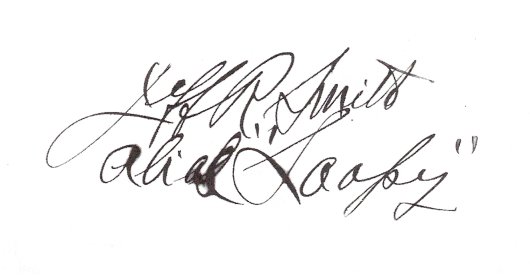 Jeff R. Smith
alias "Loopy"